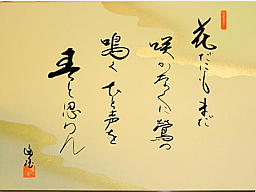 花だにもまだ
咲かなくに鶯の
鳴くひと声を
春と思はん